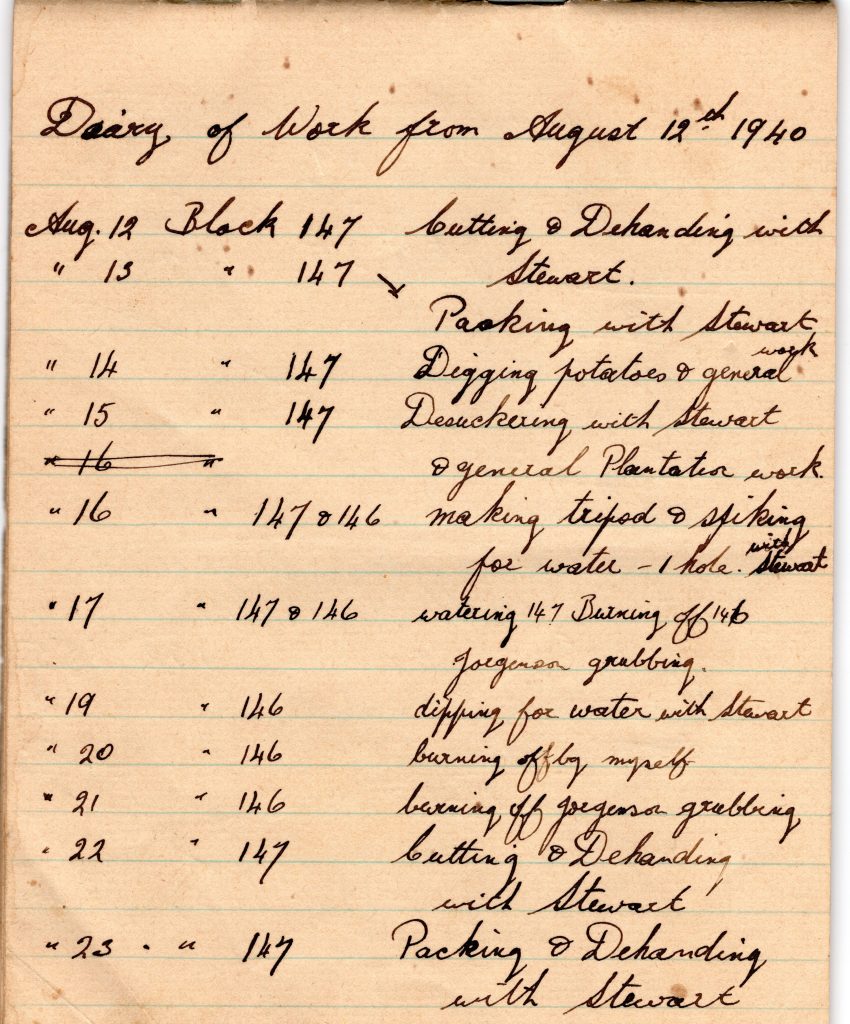 Diary of Work from August 12th 1940
Aug. 12 Block 147 Cutting & Dehanding with
" 13 " 147 Stewart.
Packing with Stewart
" 14 " 147 Digging potatoes & general work
" 15 " 147 Desuckering with Stewart
" 16 " & general Plantation work.
" 16 " 147 & 146 making tripod & spiking
for water - 1 hole. with Stewart
" 17 " 147 & 146 watering 147 Burning off 146
Joegenson grubbing.
" 19 " 146 dipping for water with Stewart
" 20 " 146 burning off by myself
" 21 " 146 burning off Joegenson grubbing
" 22 " 147 Cutting & Dehanding
with Stewart
" 23 - " 147 Packing & Dehanding
with Stewart